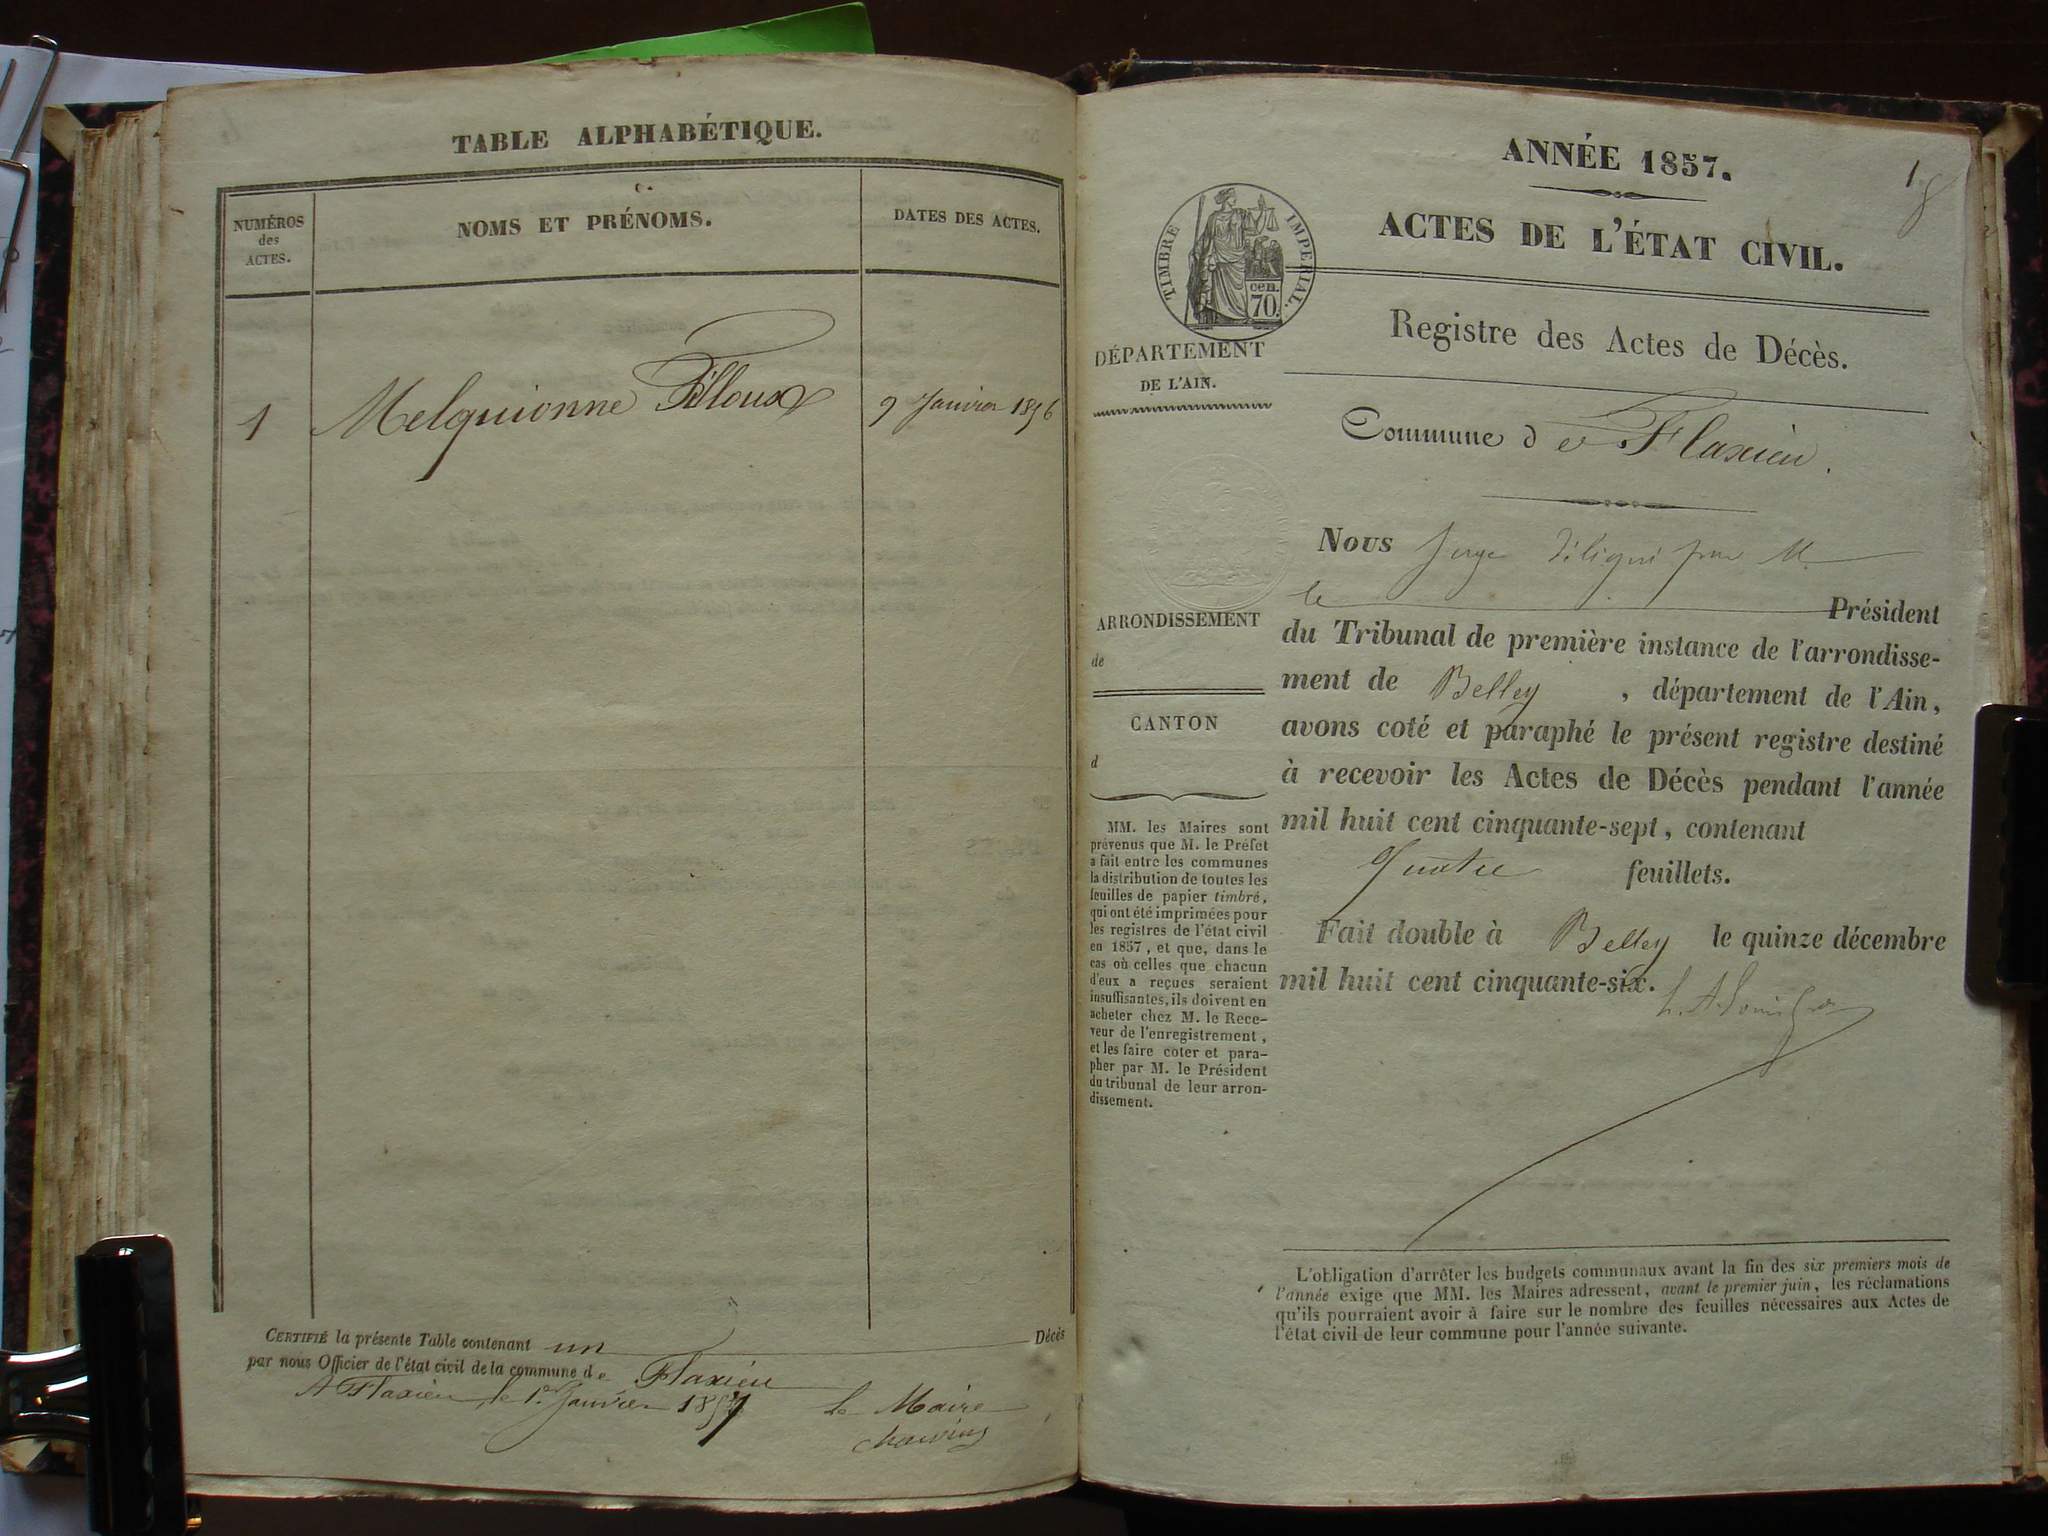 TABLE ALPHABÉTIQUE.
NUMÉROS
des
ACTES.
NOMS ET PRÉNOMS.
DATES DES ACTES.
1 Melquionne 9 Janvier 1856
CERTIFIÉ la présente Table contenant un Décès
par nous Officier de l'état civil de la commune de Flaxieu
A Flaxieu, le 1er Janvier 1857 le Maire
ANNÉE 1857.
1
ACTES DE L'ÉTAT CIVIL.
TIMBRE IMPERIAL.
cen.
70.
Registre des Actes de Décès.
DÉPARTEMENT
DE L'AIN.
Commune de Flaxieu.
ARRONDISSEMENT
de
CANTON
d
MM. les Maires sont
prévenus que M. le Préfet
a fait entre les communes
la distribution de toutes les
feuilles de papier timbré,
qui ont été imprimées pour
les registres de l'état civil
en 1857, et que, dans le
cas où celles que chacun
d'eux a reçues seraient
insuffisantes, ils doivent en
acheter chez M. le Rece-
veur de l'enregistrement,
et les faire coter et para-
pher par M. le Président
du tribunal de leur arron-
dissement.
Nous Juge délégué par M.
le Président
du Tribunal de première instance de l'arrondisse-
ment de Belley, département de l'Ain,
avons coté et paraphé le présent registre destiné
à recevoir les Actes de Décès pendant l'année
mil huit cent cinquante-sept, contenant
Quatre feuillets.
Fait double à Belley le quinze décembre
mil huit cent cinquante-six.
L'obligation d'arrêter les budgets communaux avant la fin des six premiers mois de
l'année exige que MM. les Maires adressent, avant le premier juin, les réclamations
qu'ils pourraient avoir à faire sur le nombre des feuilles nécessaires aux Actes de
l'état civil de leur commune pour l'année suivante.